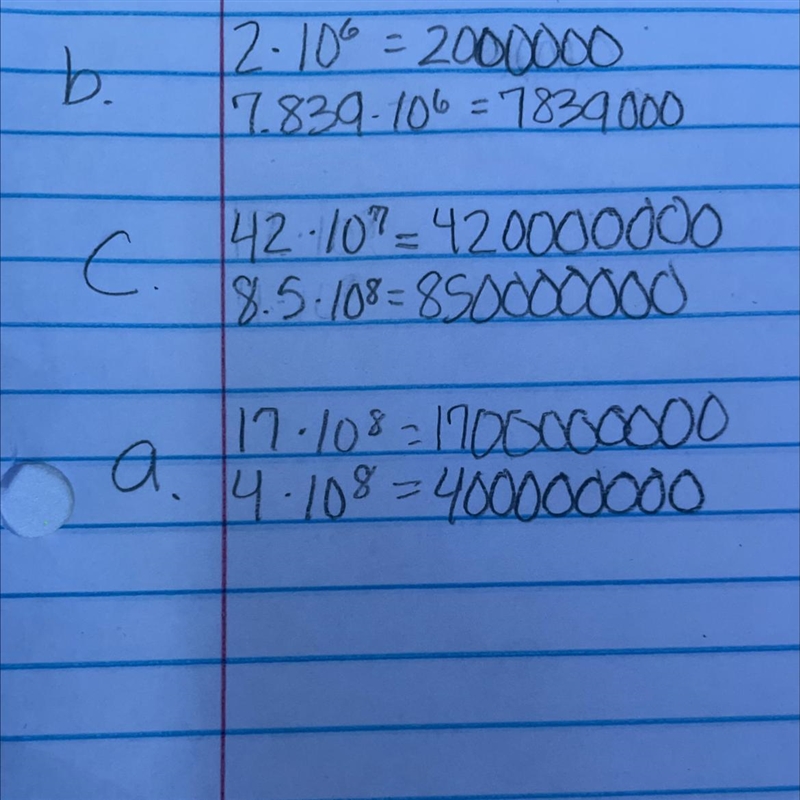 b. 2 · 10⁶ = 2000000
7.839 · 10⁶ = 7839000
C. 42 · 10⁷ = 420000000
8.5 · 10⁸ = 850000000
a. 17 · 10⁸ = 1700000000
4 · 10⁸ = 400000000